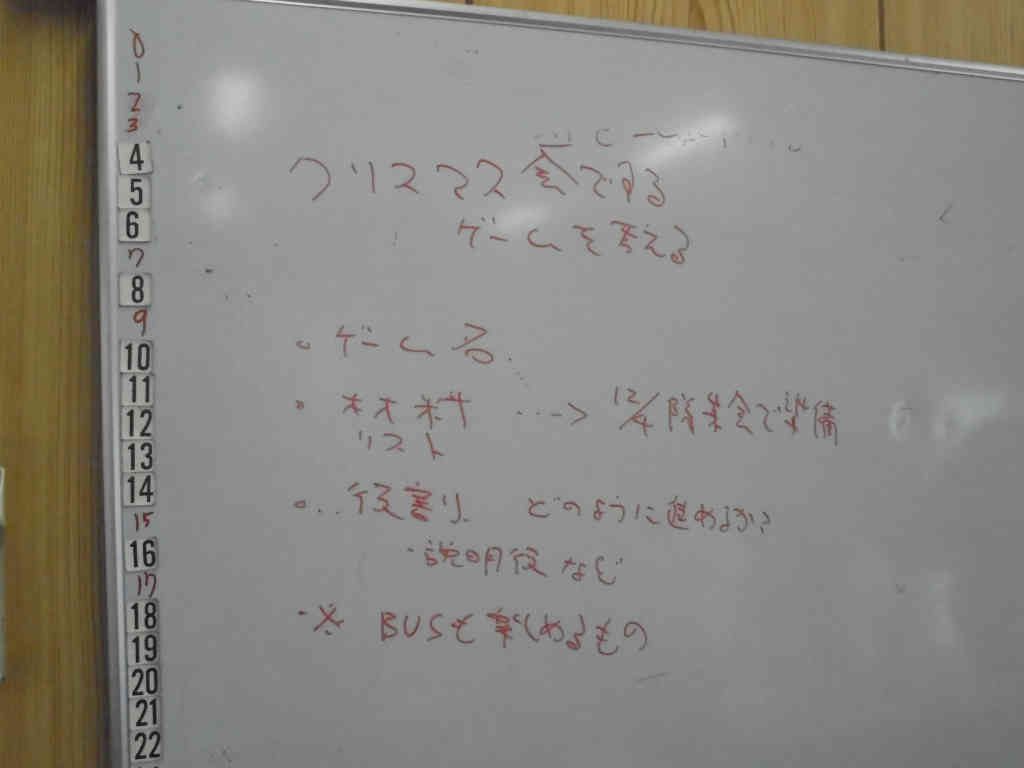 0
1
2
3
4
5
6
7
8
9
10
11
12
13
14
15
16
17
18
19
20
21
22
クリスマス会でする
ゲームを考える
。ゲーム名
。材料 ...→ 12/4 隊集会で準備
リスト
。..役割り どのように進めるか?
・説明役 など
・※ BUSも楽しめるもの